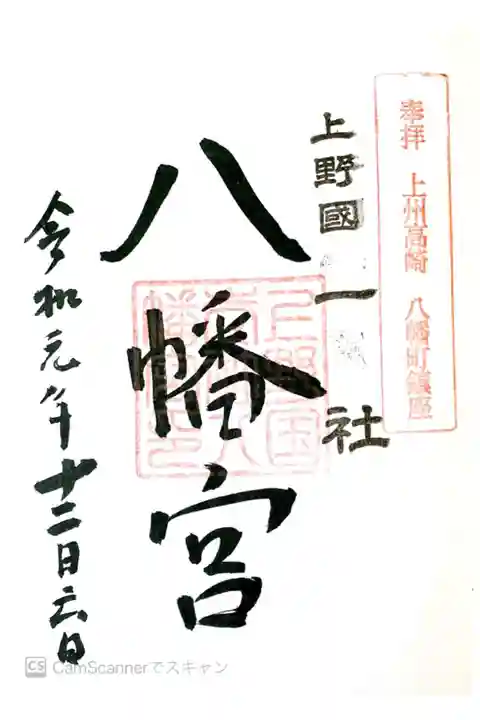 奉拝 上州高崎 八幡町鎮座
上野國一社
八幡宮
令和元年十二日六日
CS CamScannerでスキャン